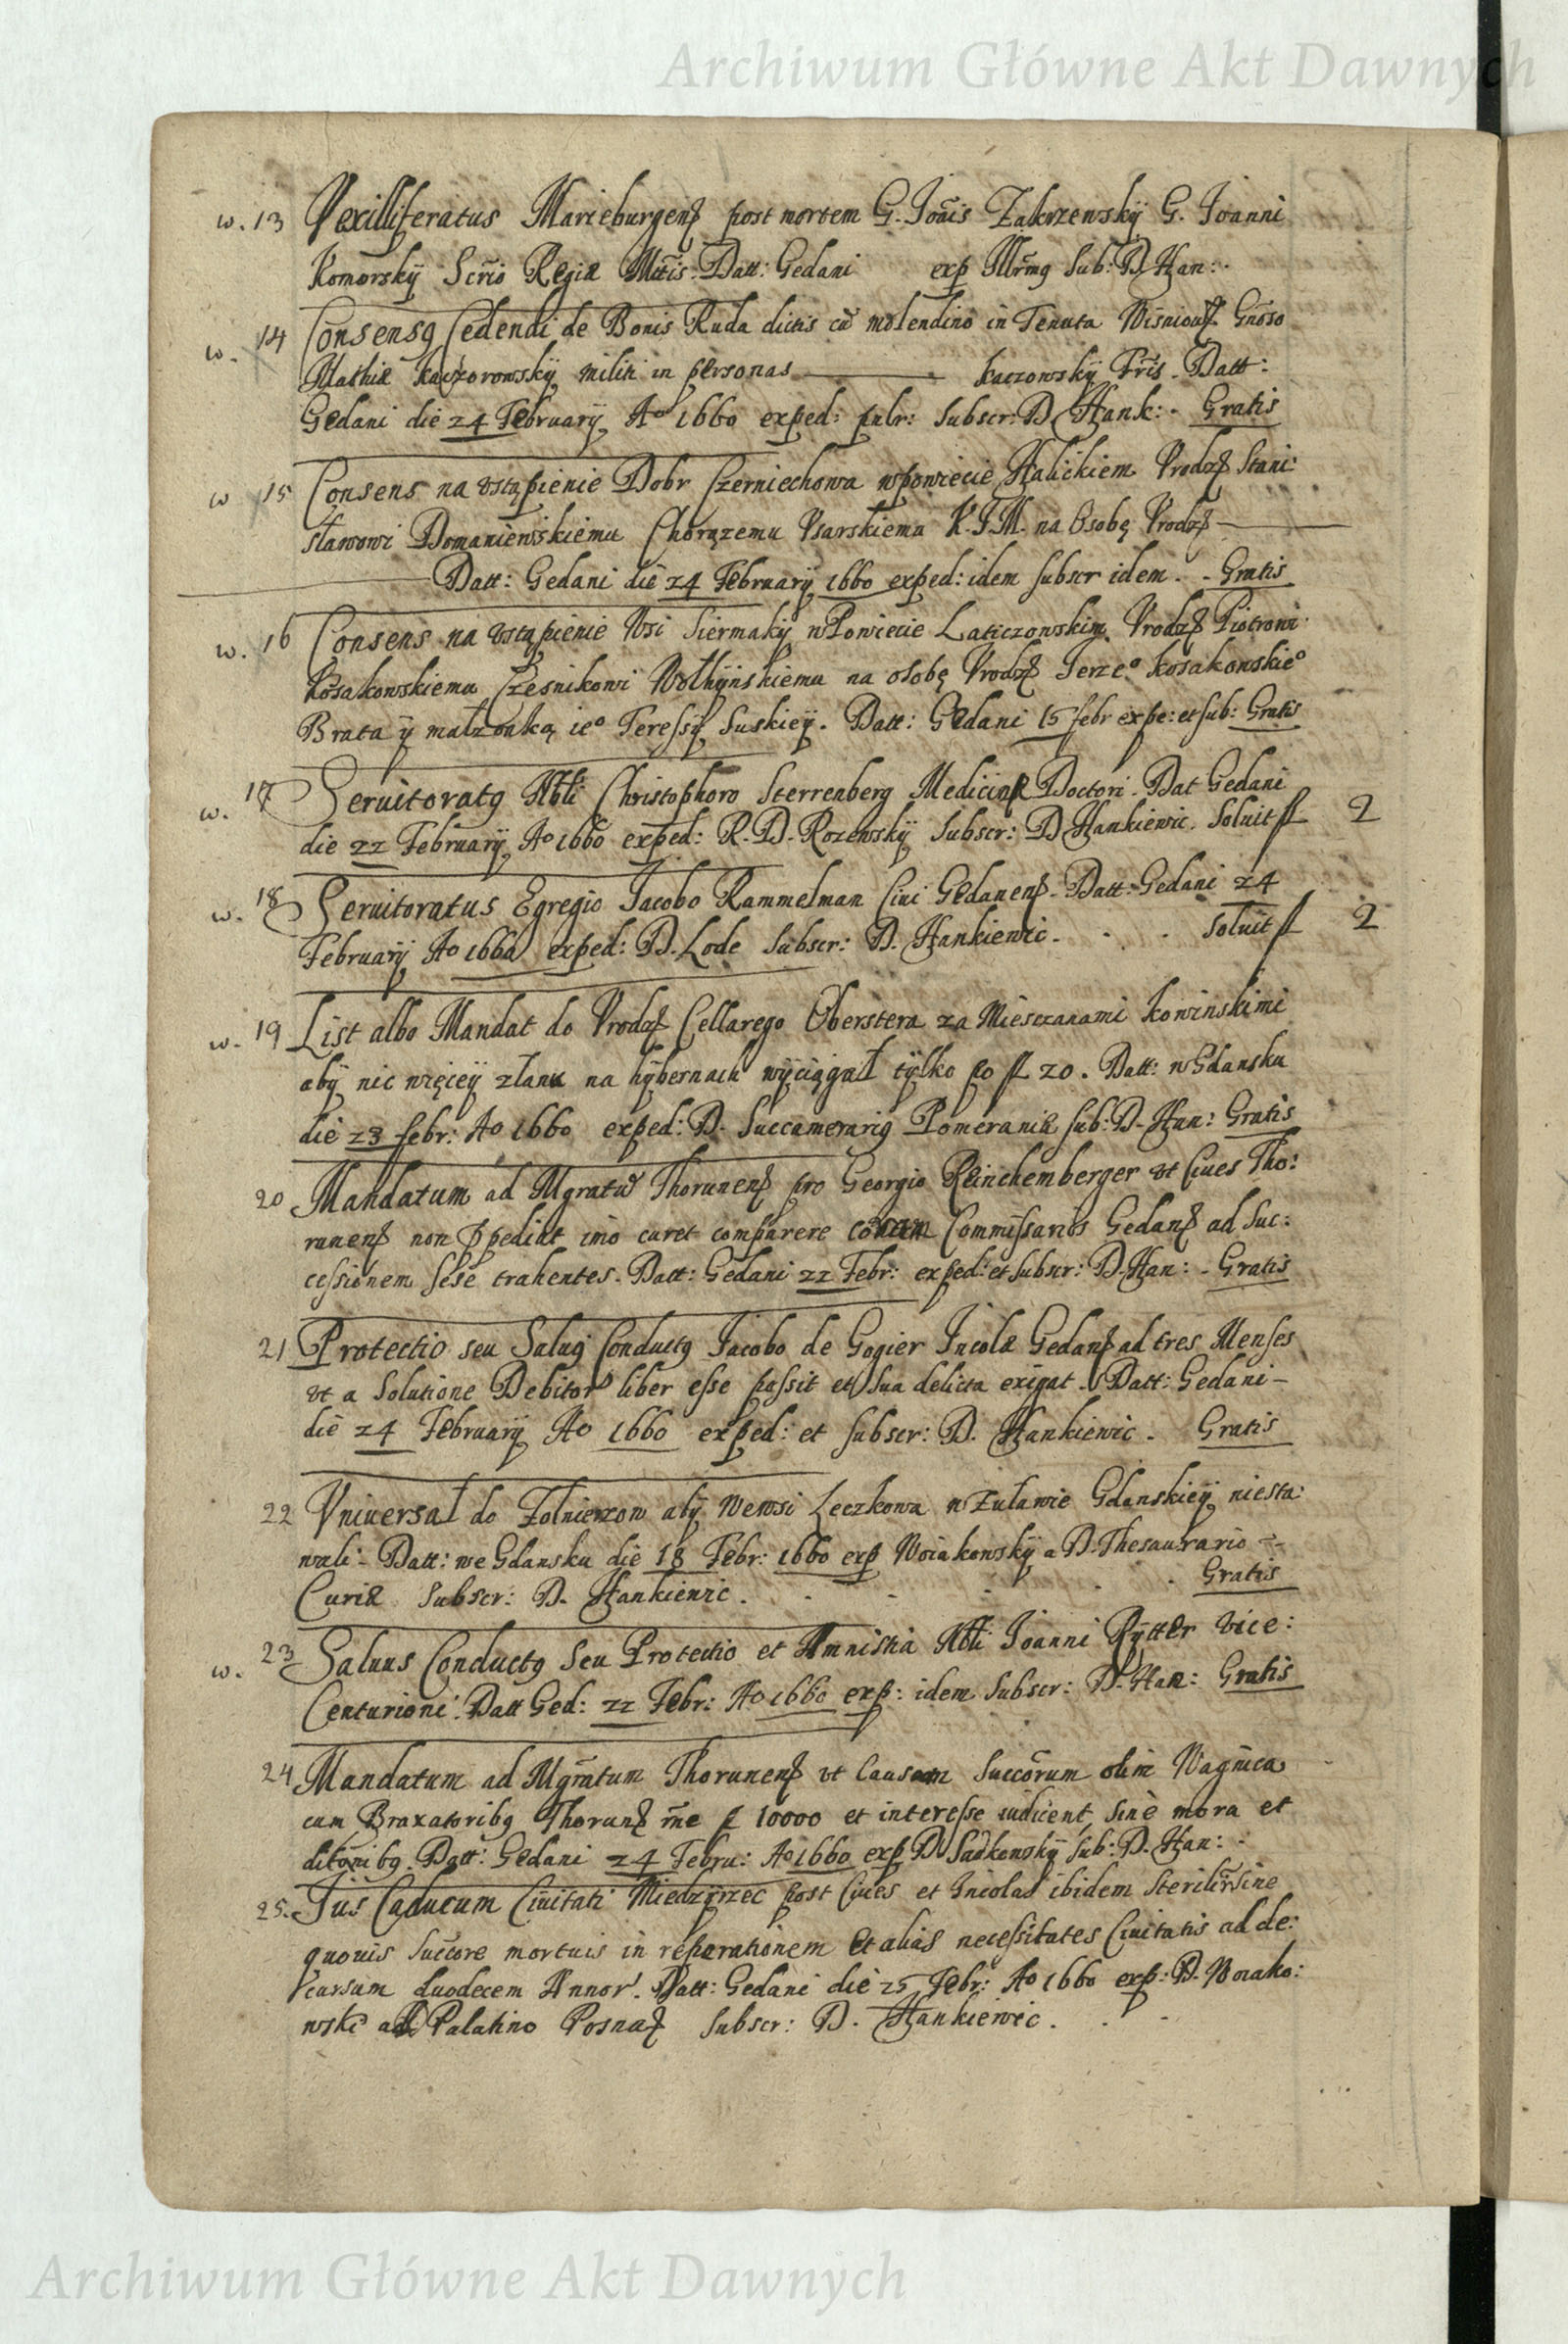 Archiwum Główne Akt Dawnych
w. 13 Vexilliferatus Marieburgens post mortem G. Joannis Zakrzewskÿ G. Joanni
Komorskÿ Scrio Regiæ Mttis. Datt: Gedani exp Sub: D Han:.
w. 14 Consensq Cedendi de Bonis Ruda dictis cū molendino in Tenuta Gnoso
Mathiæ Kaczorowskÿ militi in personas Kaczowskÿ Fris. Datt:
Gedani die 24 Februarÿ Ao 1660 exped: pulr: Subscr: D Hank:. Gratis
w 15 Consens na vstąpienie Dobr Czerniechowa wpowiecie Halickiem Vrodz Stani:
sławowi Domaniewskiemu Chorązemu Vsarskiemu K.J.M. na Osobę Vrodz
Datt: Gedani die 24 Februarÿ 1660 exped: idem subscr idem. - Gratis
w. 16 Consens na vstąpienie Wsi Siermakÿ wPowiecie Laticzowskim Vrodz Piotrowi
Kosakowskiemu Czesnikowi Wołhÿnskiemu na osobę Vrodz Jerzeo Kosakowskieo
Brata ÿ małzonką ieo Teressÿ Suskieÿ. Datt: Gedani 15 febr expe: et sub: Gratis
w. 17 Seruitoratq Nbli Christophoro Sterrenberg Medicinæ Doctori. Dat Gedani
die 22 Februarÿ Ao 1660 exped: R. D. Rozewskÿ Subscr: D Hankiewic. Soluit fl 2
w. 18 Seruitoratus Egregio Jacobo Rammelman Ciui Gedanens. Datt: Gedani 24
Februarÿ Ao 1660 exped: D. Lode Subscr: D. Hankiewic. Soluit fl 2
w. 19 List albo Mandat do Vrodz Cellarego Oberstera za Miesczanami Kowinskimi
abÿ nic więceÿ złanu na hÿbernach wÿciągał tÿlko po fl 20. Datt: wGdansku
die 23 febr: Ao 1660 exped: D. Succamerariq Pomeraniæ sub: D. Han: Gratis
20 Mandatum ad Mgratū Thorunens pro Georgio Reinchemberger vt Ciues Tho:
runens non ppediat imo curet comparere coram Commissarios Gedans ad Suc:
cessionem sese trahentes. Datt: Gedani 22 Febr: exped: et subscr: D. Han: - Gratis
21 Protectio seu Saluq Conductq Jacobo de Gogier Incolæ Gedans ad tres Menses
vt a Solutione Debitor liber esse possit et sua delicta exigat. Datt: Gedani -
die 24 Februarÿ Ao 1660 exped: et subscr: D. Hankiewic. Gratis
22 Vniuersał do Zolnierzow abÿ wewsi Leczkowa wZuławie Gdanskieÿ niesta:
wali - Datt: we Gdansku die 18 Febr: 1660 exp Woiakowskÿ a D. Thesaurario
Curiæ Subscr: D. Hankiewic. Gratis
w. 23 Saluus Conductq Seu Protectio et Amnistia Nbli Joanni Rÿtter vice:
Centurioni. Datt Ged: 22 Febr: Ao 1660 exp: idem Subscr: D. Han: Gratis
24 Mandatum ad Mgratum Thorunens vt Causam Succorum olim
cum Braxatoribq Thoruns rne fl 10000 et interesse iudicent, sine mora et
Datt: Gedani 24 Febru: Ao 1660 exp D Sadkowskÿ Sub: D. Han:.
25. Jus Caducum Ciuitati Miedzÿrzec post Ciues et Incolas ibidem sine
quouis Succore mortuis in reparationem et alias necessitates Ciuitatis ad de:
cursum duodecem Annor. Datt: Gedani die 25 Febr: Ao 1660 exp: D. Woiako:
wski a D Palatino Posna Subscr: D. Hankiewic.
Archiwum Główne Akt Dawnych